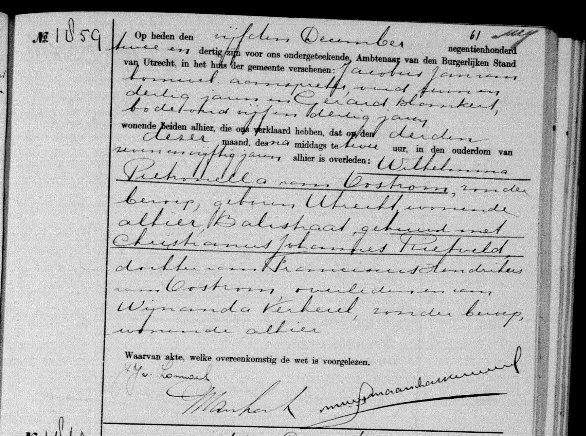 № 1859
61
Op heden den vijfden December negentienhonderd
twee en dertig zijn voor ons ondergeteekende, Ambtenaar van den Burgerlijken Stand
van Utrecht, in het huis der gemeente verschenen: Jacobus Jan van
aanspreker, oud
dertig jaren en Gerard Blankert,
bode oud vijf en dertig jaren
wonende beiden alhier, die ons verklaard hebben, dat op den derden
dezer maand, des na middags te twee uur, in den ouderdom van
vijftig jaren alhier is overleden: Wilhelmina
Petronella van Oostrom, zonder
beroep, geboren Utrecht wonende
alhier, Balistraat, gehuwd met
Christianus Johannes Rietveld
dochter van Franciscus Hendrikus
van Oostrom, overleden en van
Wijnanda Verheul, zonder beroep,
wonende alhier
Waarvan akte, welke overeenkomstig de wet is voorgelezen.